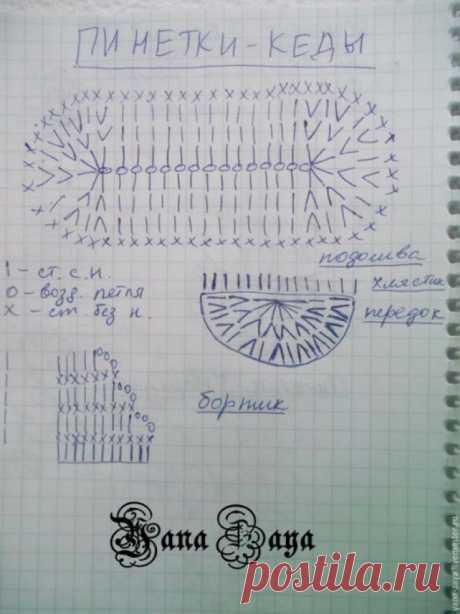 ПИНЕТКИ-КЕДЫ
подошва
I - ст. с.н.
хлястик
O - возд. петля
X - ст. без н.
передок
бортик
Yana Laya
postila.ru